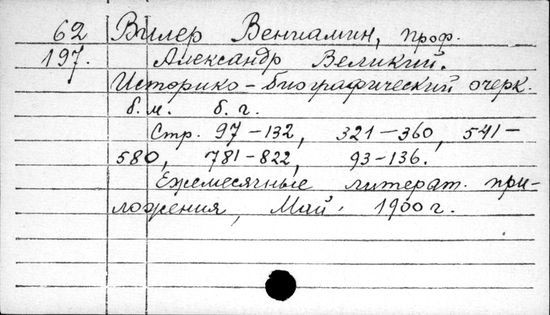 62 Вилер Вениамин, проф.
197. Александр Великий.
Историко-биографический очерк.
б.м. б.г.
Стр. 97-132, 321-360, 541-
580, 781-822, 93-136.
Ежемесячные литерат. при-
ложения, Май 1900 г.